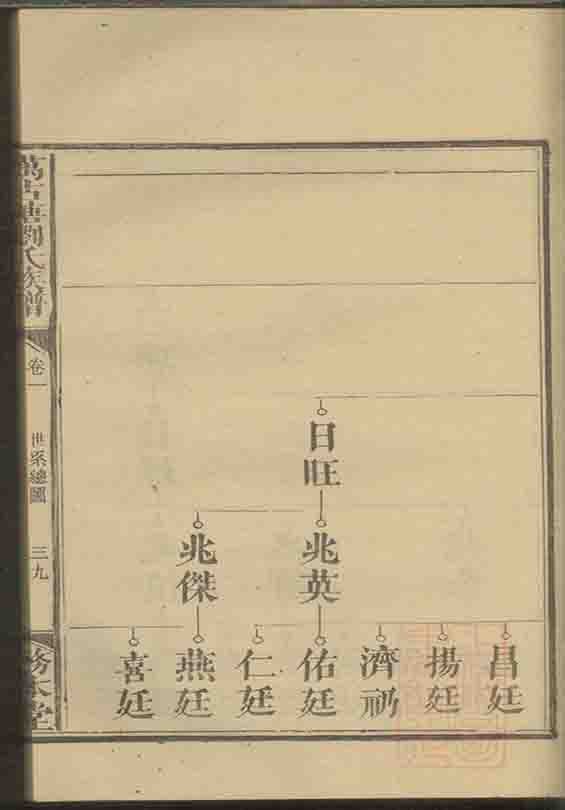 日旺
兆英
兆傑
昌廷
揚廷
濟
佑廷
仁廷
燕廷
喜廷
萬古塘劉氏族譜
卷一
世系總圖
三九
務本堂